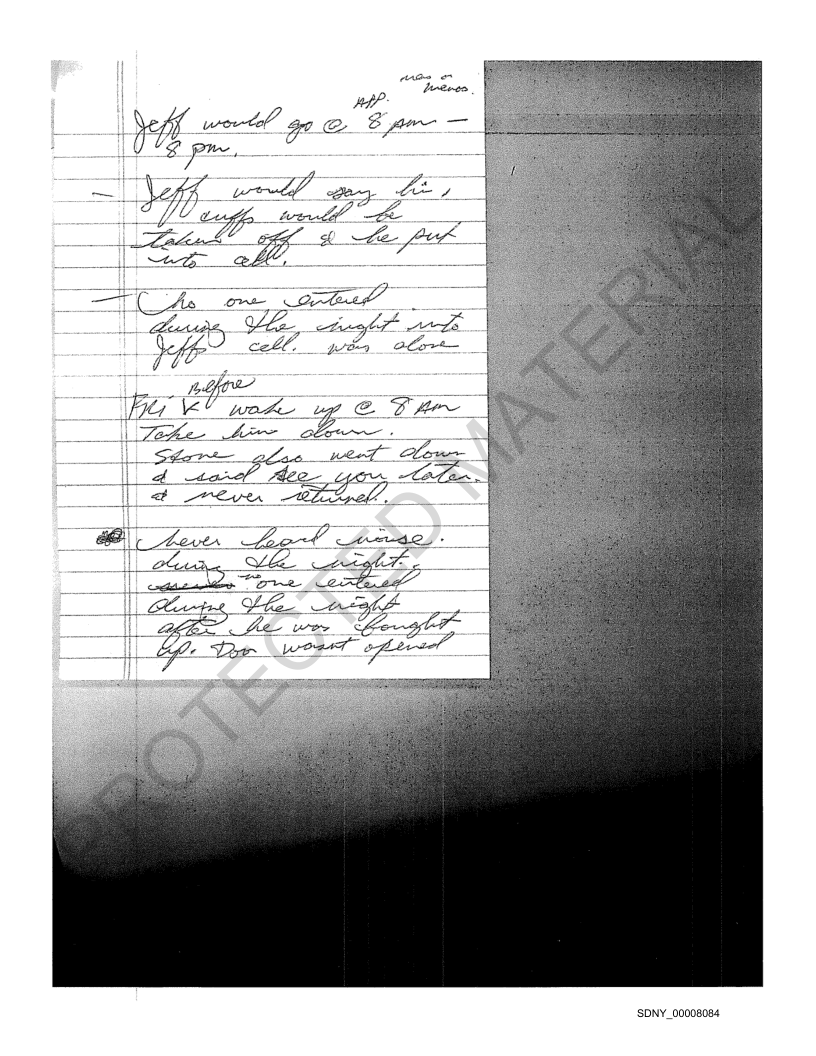 mas o
menos.
APP.
Jeff would go @ 8 am —
8 pm.
— Jeff would say hi,
cuffs would be
taken off & he put
into cell.
— No one entered
during the night into
Jeff's cell. was alone
Before
Fri wake up @ 8 Am
Take him down.
Stone also went down
& said see you later.
& never returned.
Never heard noise.
during the night.
no one entered
during the night
after he was brought
up. Door wasnt opened
PROTECTED MATERIAL
SDNY_00008084